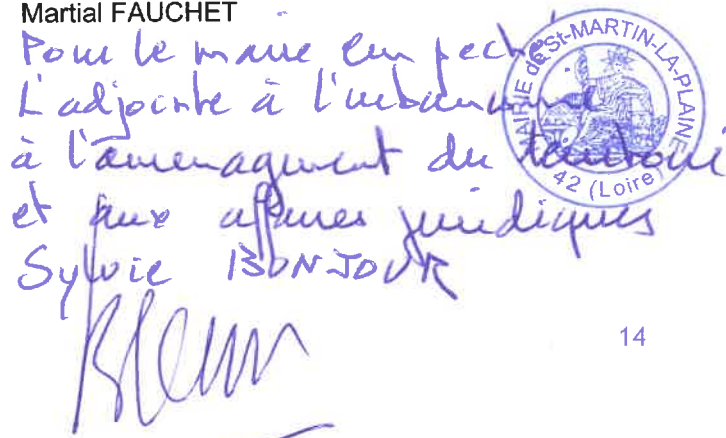 Martial FAUCHET
Pour le maire empeché
L'adjointe à l'urbanisme
à l'amenagement du territoire
et aux affaires juridiques
Sylvie BONJOUR
MAIRIE de St-MARTIN-LA-PLAINE
42 (Loire)
14